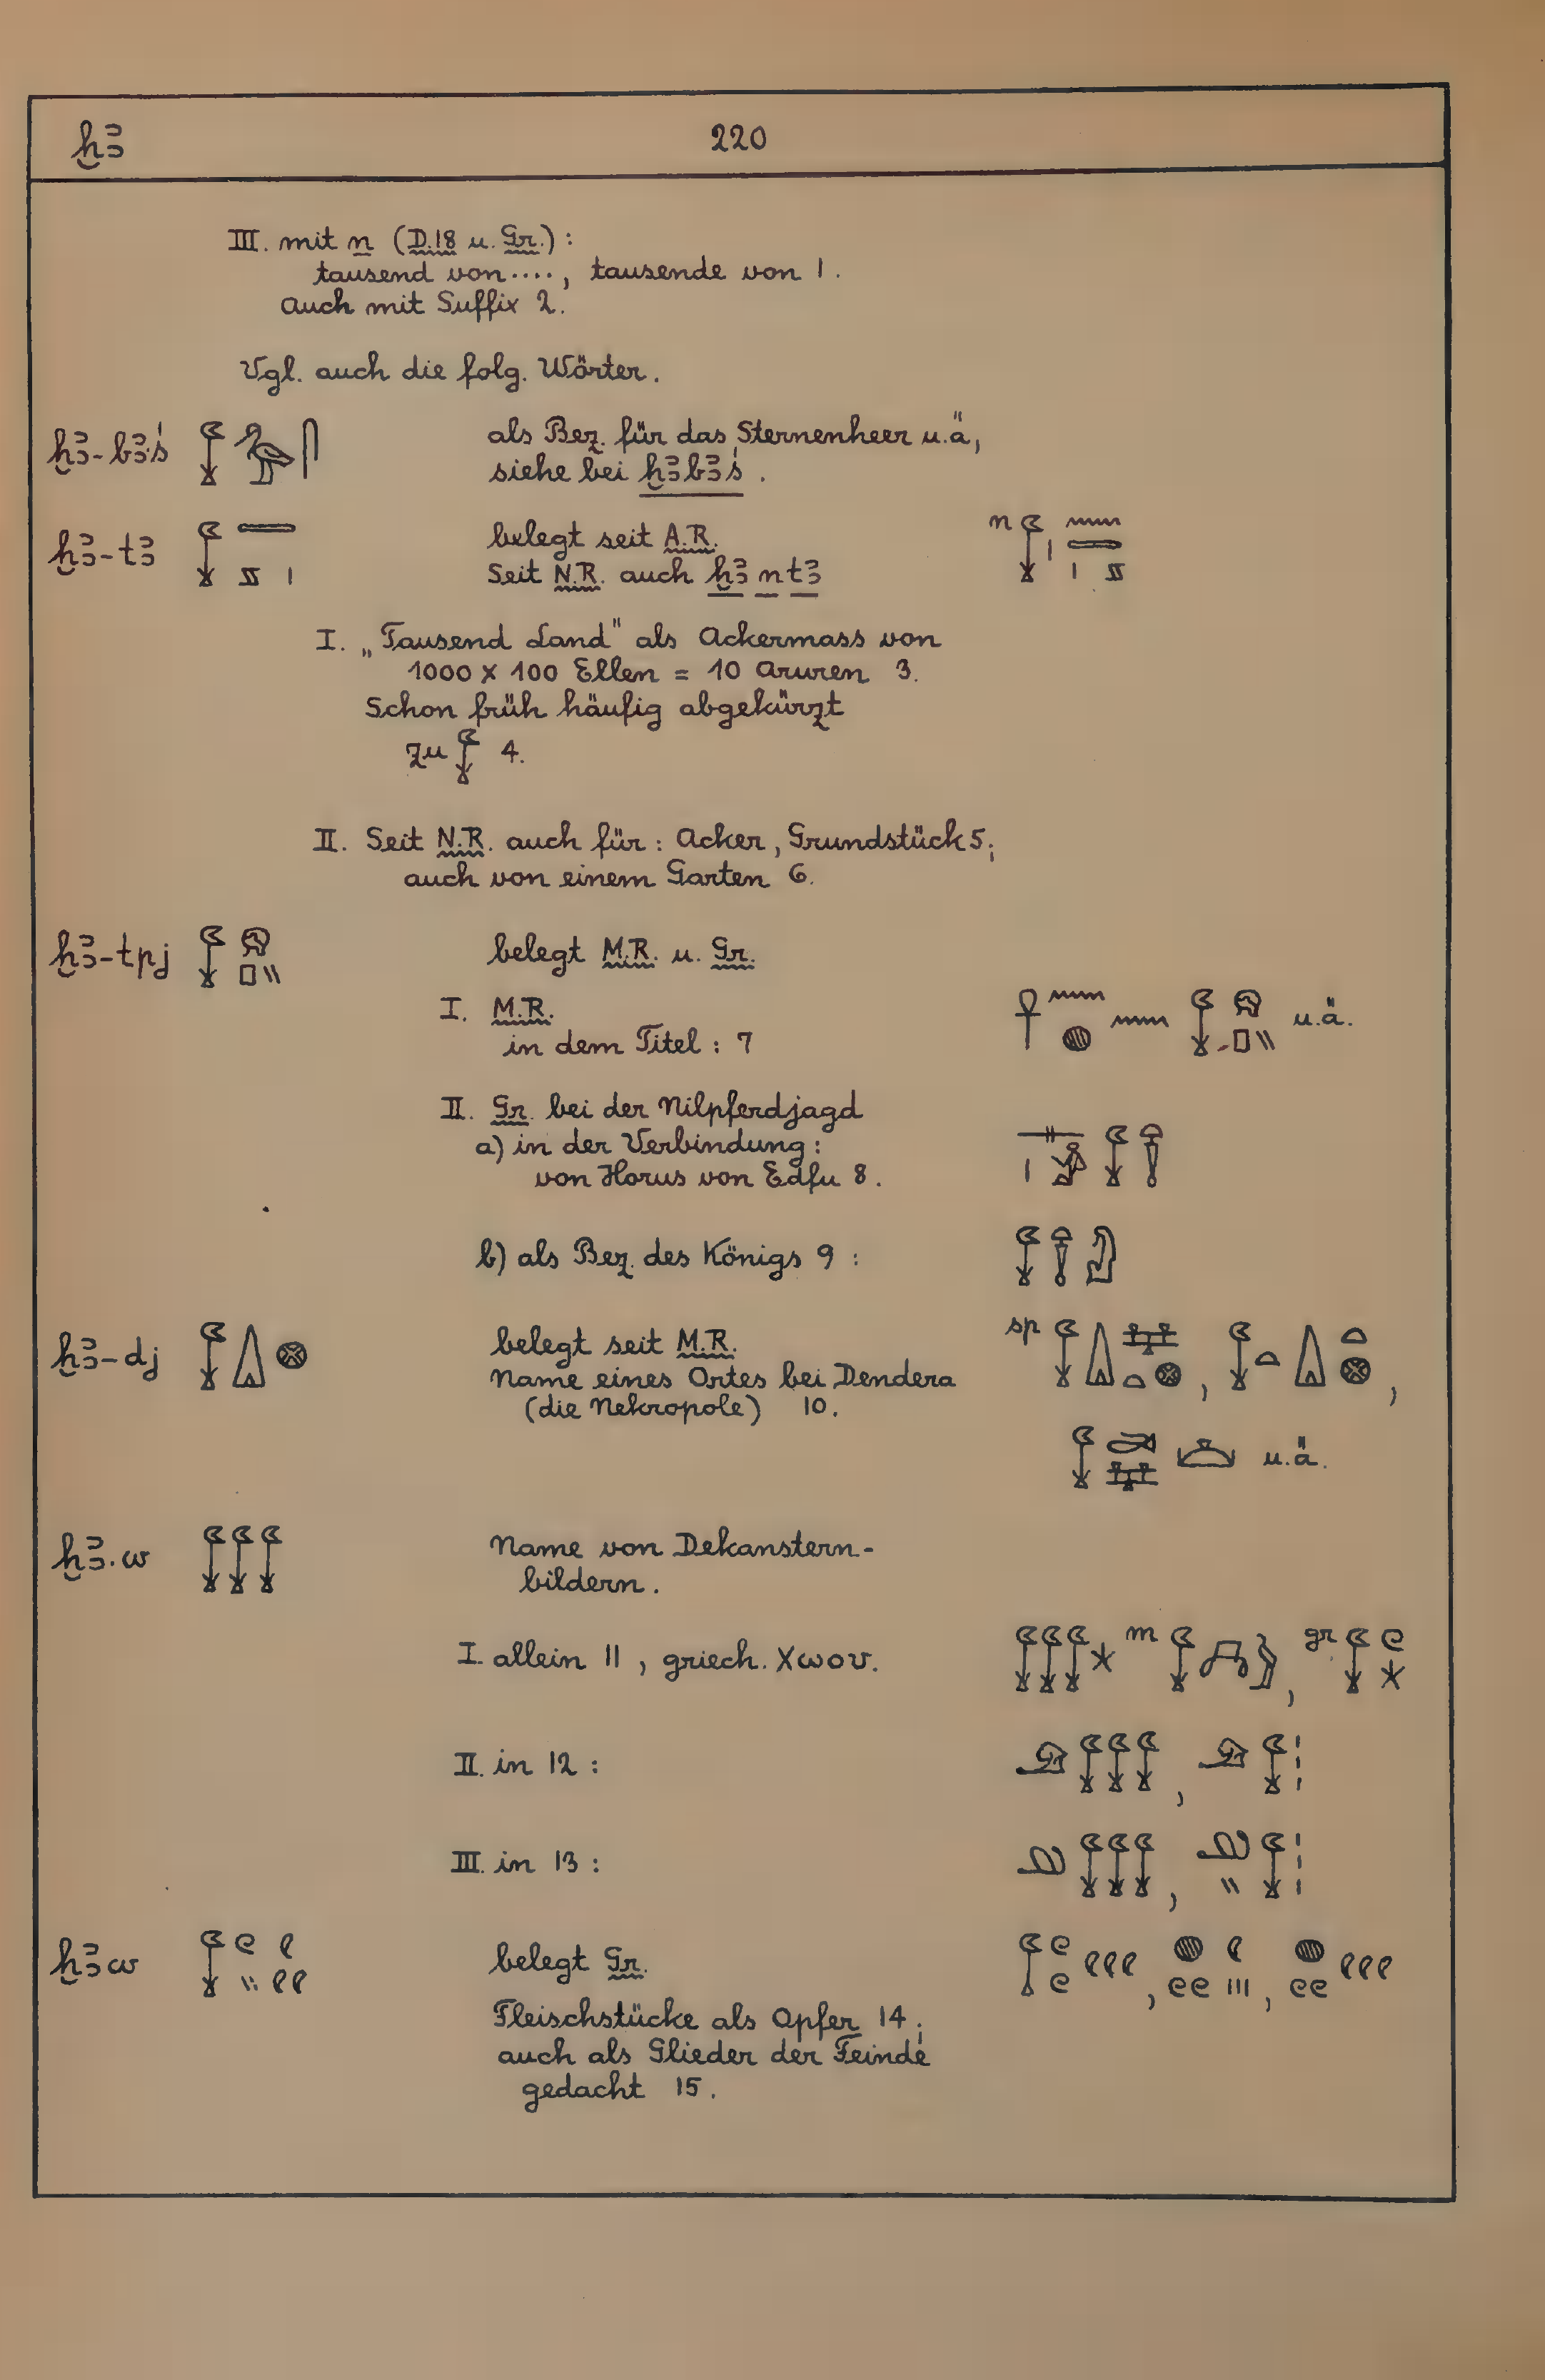 ḫꜣ 220
III. mit n (D.18 u. Gr.):
tausend von ...., tausende von 1.
auch mit Suffix 2.
Vgl. auch die folg. Wörter.
ḫꜣ-bꜣ.ś als Bez. für das Sternenheer u.ä,
siehe bei ḫꜣbꜣś.
ḫꜣ-tꜣ belegt seit A.R. n
Seit N.R. auch ḫꜣ n tꜣ
I. „Tausend Land" als Ackermass von
1000 x 100 Ellen = 10 Aruren 3.
Schon früh häufig abgekürzt
zu 4.
II. Seit N.R. auch für: Acker, Grundstück 5;
auch von einem Garten 6.
ḫꜣ-tpj belegt M.R. u. Gr.
I. M.R. u.ä.
in dem Titel: 7
II. Gr. bei der Nilpferdjagd
a) in der Verbindung:
von Horus von Edfu 8.
b) als Bez. des Königs 9:
ḫꜣ-dj belegt seit M.R. sp , ,
Name eines Ortes bei Dendera
(die Nekropole) 10.
u.ä.
ḫꜣ.w Name von Dekanstern-
bildern.
I. allein 11, griech. Χωου. m , gr
II. in 12: ,
III. in 13: ,
ḫꜣw belegt Gr. , ,
Fleischstücke als Opfer 14;
auch als Glieder der Feinde
gedacht 15.